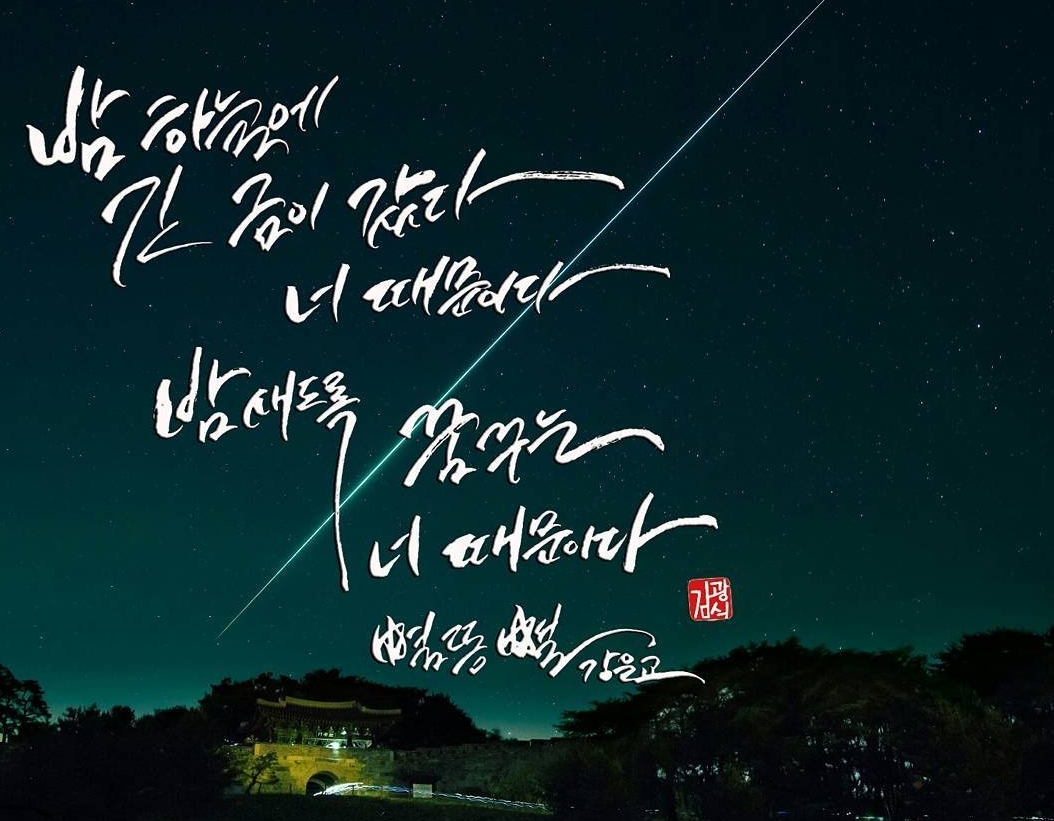 밤 하늘에
긴 금이 갔다
너 때문이다
밤새도록 꿈꾸는
너 때문이다
별똥 별 강은교
김광식